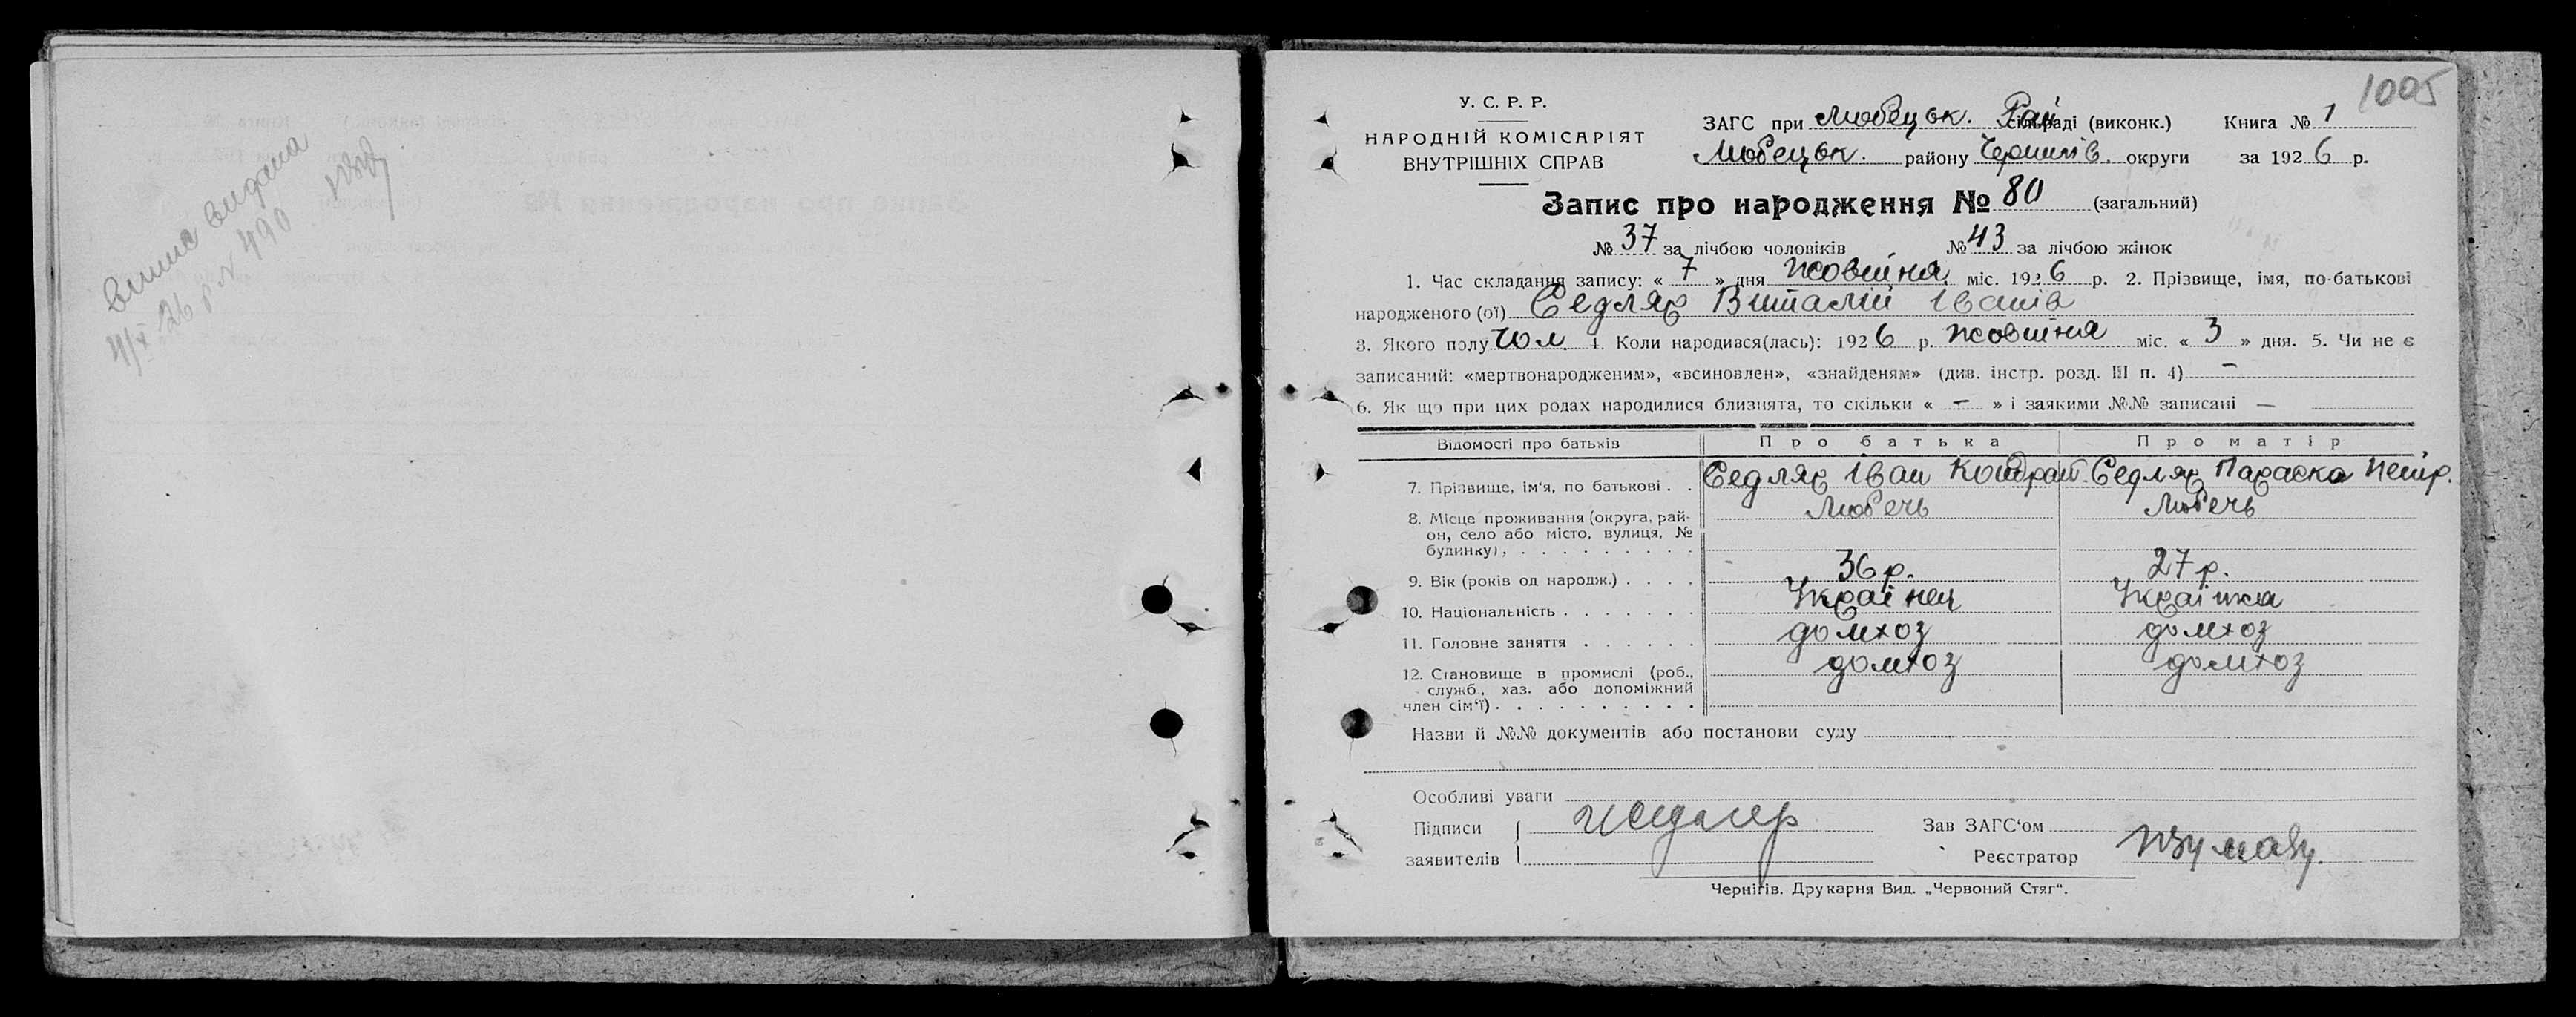 виписа видана
490
1005
У. С. Р. Р.
НАРОДНІЙ КОМІСАРІЯТ
ВНУТРІШНІХ СПРАВ
ЗАГС при Любецьк. Рай сільраді (виконк.) Книга № 1
Любецьк. району Чернигів. округи за 1926 р.
Запис про народження № 80 (загальний)
№ 37 за лічбою чоловіків № 43 за лічбою жінок
1. Час складання запису: « 7 » дня жовтня міс. 1926 р. 2. Прізвище, імя, по-батькові
народженого (ої) Седляр Виталій Іванів
3. Якого полу чол. 4. Коли народився(лась): 1926 р. жовтня міс. « 3 » дня. 5. Чи не є
записаний: «мертвонародженим», «всиновлен», «знайденям» (див. інстр. розд. III п. 4) —
6. Як що при цих родах народилися близнята, то скільки « — » і заякими №№ записані —
Відомості про батьків Про батька Про матір
7. Прізвище, ім'я, по батькові . . Седляр Іван Кондрат. Седляр Параска Петр.
8. Місце проживання (округа, рай- Любечь Любечь
он, село або місто, вулиця, №
будинку) . . . . . . . . .
9. Вік (років од народж.) . . . . 36 р. 27 р.
10. Національність . . . . . . . Українец Українка
11. Головне заняття . . . . . . домхоз домхоз
12. Становище в промислі (роб., домхоз домхоз
служб., хаз. або допоміжний
член сім'ї) . . . . . . . . . .
Назви й №№ документів або постанови суду
Особливі уваги
Підписи Зав ЗАГС'ом
заявителів Реєстратор
Чернігів. Друкарня Вид. „Червоний Стяг“.